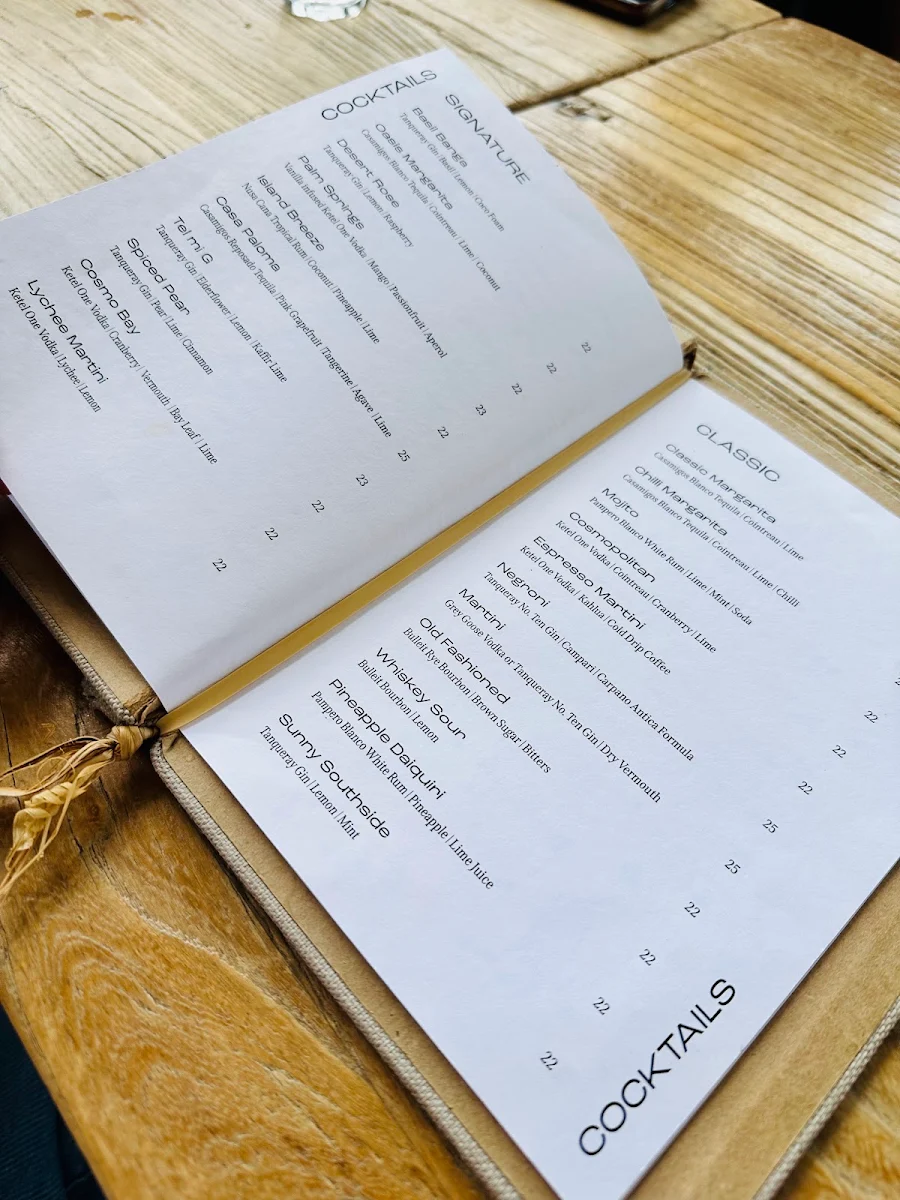 COCKTAILS
SIGNATURE
Basil Banga 22
Tanqueray Gin | Basil | Lemon | Coco Foam
Oasis Margarita 22
Casamigos Blanco Tequila | Cointreau | Lime | Coconut
Desert Rose 22
Tanqueray Gin | Lemon | Raspberry
Palm Springs 23
Vanilla infused Ketel One Vodka | Mango | Passionfruit | Aperol
Island Breeze 22
Nusa Cana Tropical Rum | Coconut | Pineapple | Lime
Casa Paloma 25
Casamigos Reposado Tequila | Pink Grapefruit | Tangerine | Agave | Lime
Tel mi G 23
Tanqueray Gin | Elderflower | Lemon | Kaffir Lime
Spiced Pear 22
Tanqueray Gin | Pear | Lime | Cinnamon
Cosmo Bay 22
Ketel One Vodka | Cranberry | Vermouth | Bay Leaf | Lime
Lychee Martini 22
Ketel One Vodka | Lychee | Lemon
CLASSIC
Classic Margarita
Casamigos Blanco Tequila | Cointreau | Lime
Chilli Margarita
Casamigos Blanco Tequila | Cointreau | Lime | Chilli
Mojito 22
Pampero Blanco White Rum | Lime | Mint | Soda
Cosmopolitan 22
Ketel One Vodka | Cointreau | Cranberry | Lime
Espresso Martini 22
Ketel One Vodka | Kahlua | Cold Drip Coffee
Negroni 25
Tanqueray No. Ten Gin | Campari | Carpano Antica Formula
Martini 25
Grey Goose Vodka or Tanqueray No. Ten Gin | Dry Vermouth
Old Fashioned 22
Bulleit Rye Bourbon | Brown Sugar | Bitters
Whiskey Sour 22
Bulleit Bourbon | Lemon
Pineapple Daiquiri 22
Pampero Blanco White Rum | Pineapple | Lime Juice
Sunny Southside 22
Tanqueray Gin | Lemon | Mint
COCKTAILS